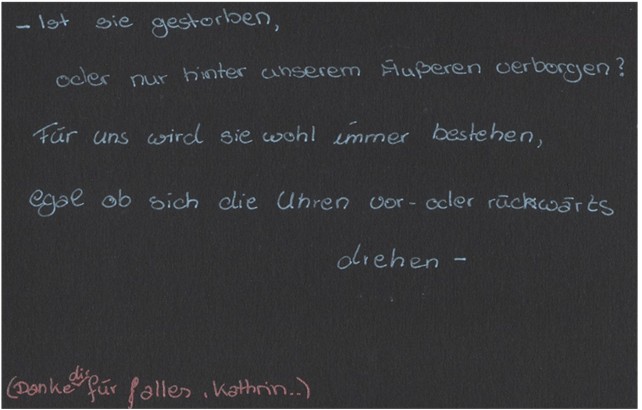 - Ist sie gestorben,
oder nur hinter unserem Äußeren verborgen?
Für uns wird sie wohl immer bestehen,
egal ob sich die Uhren vor- oder rückwärts
drehen -
(Danke dir für alles, Kathrin..)